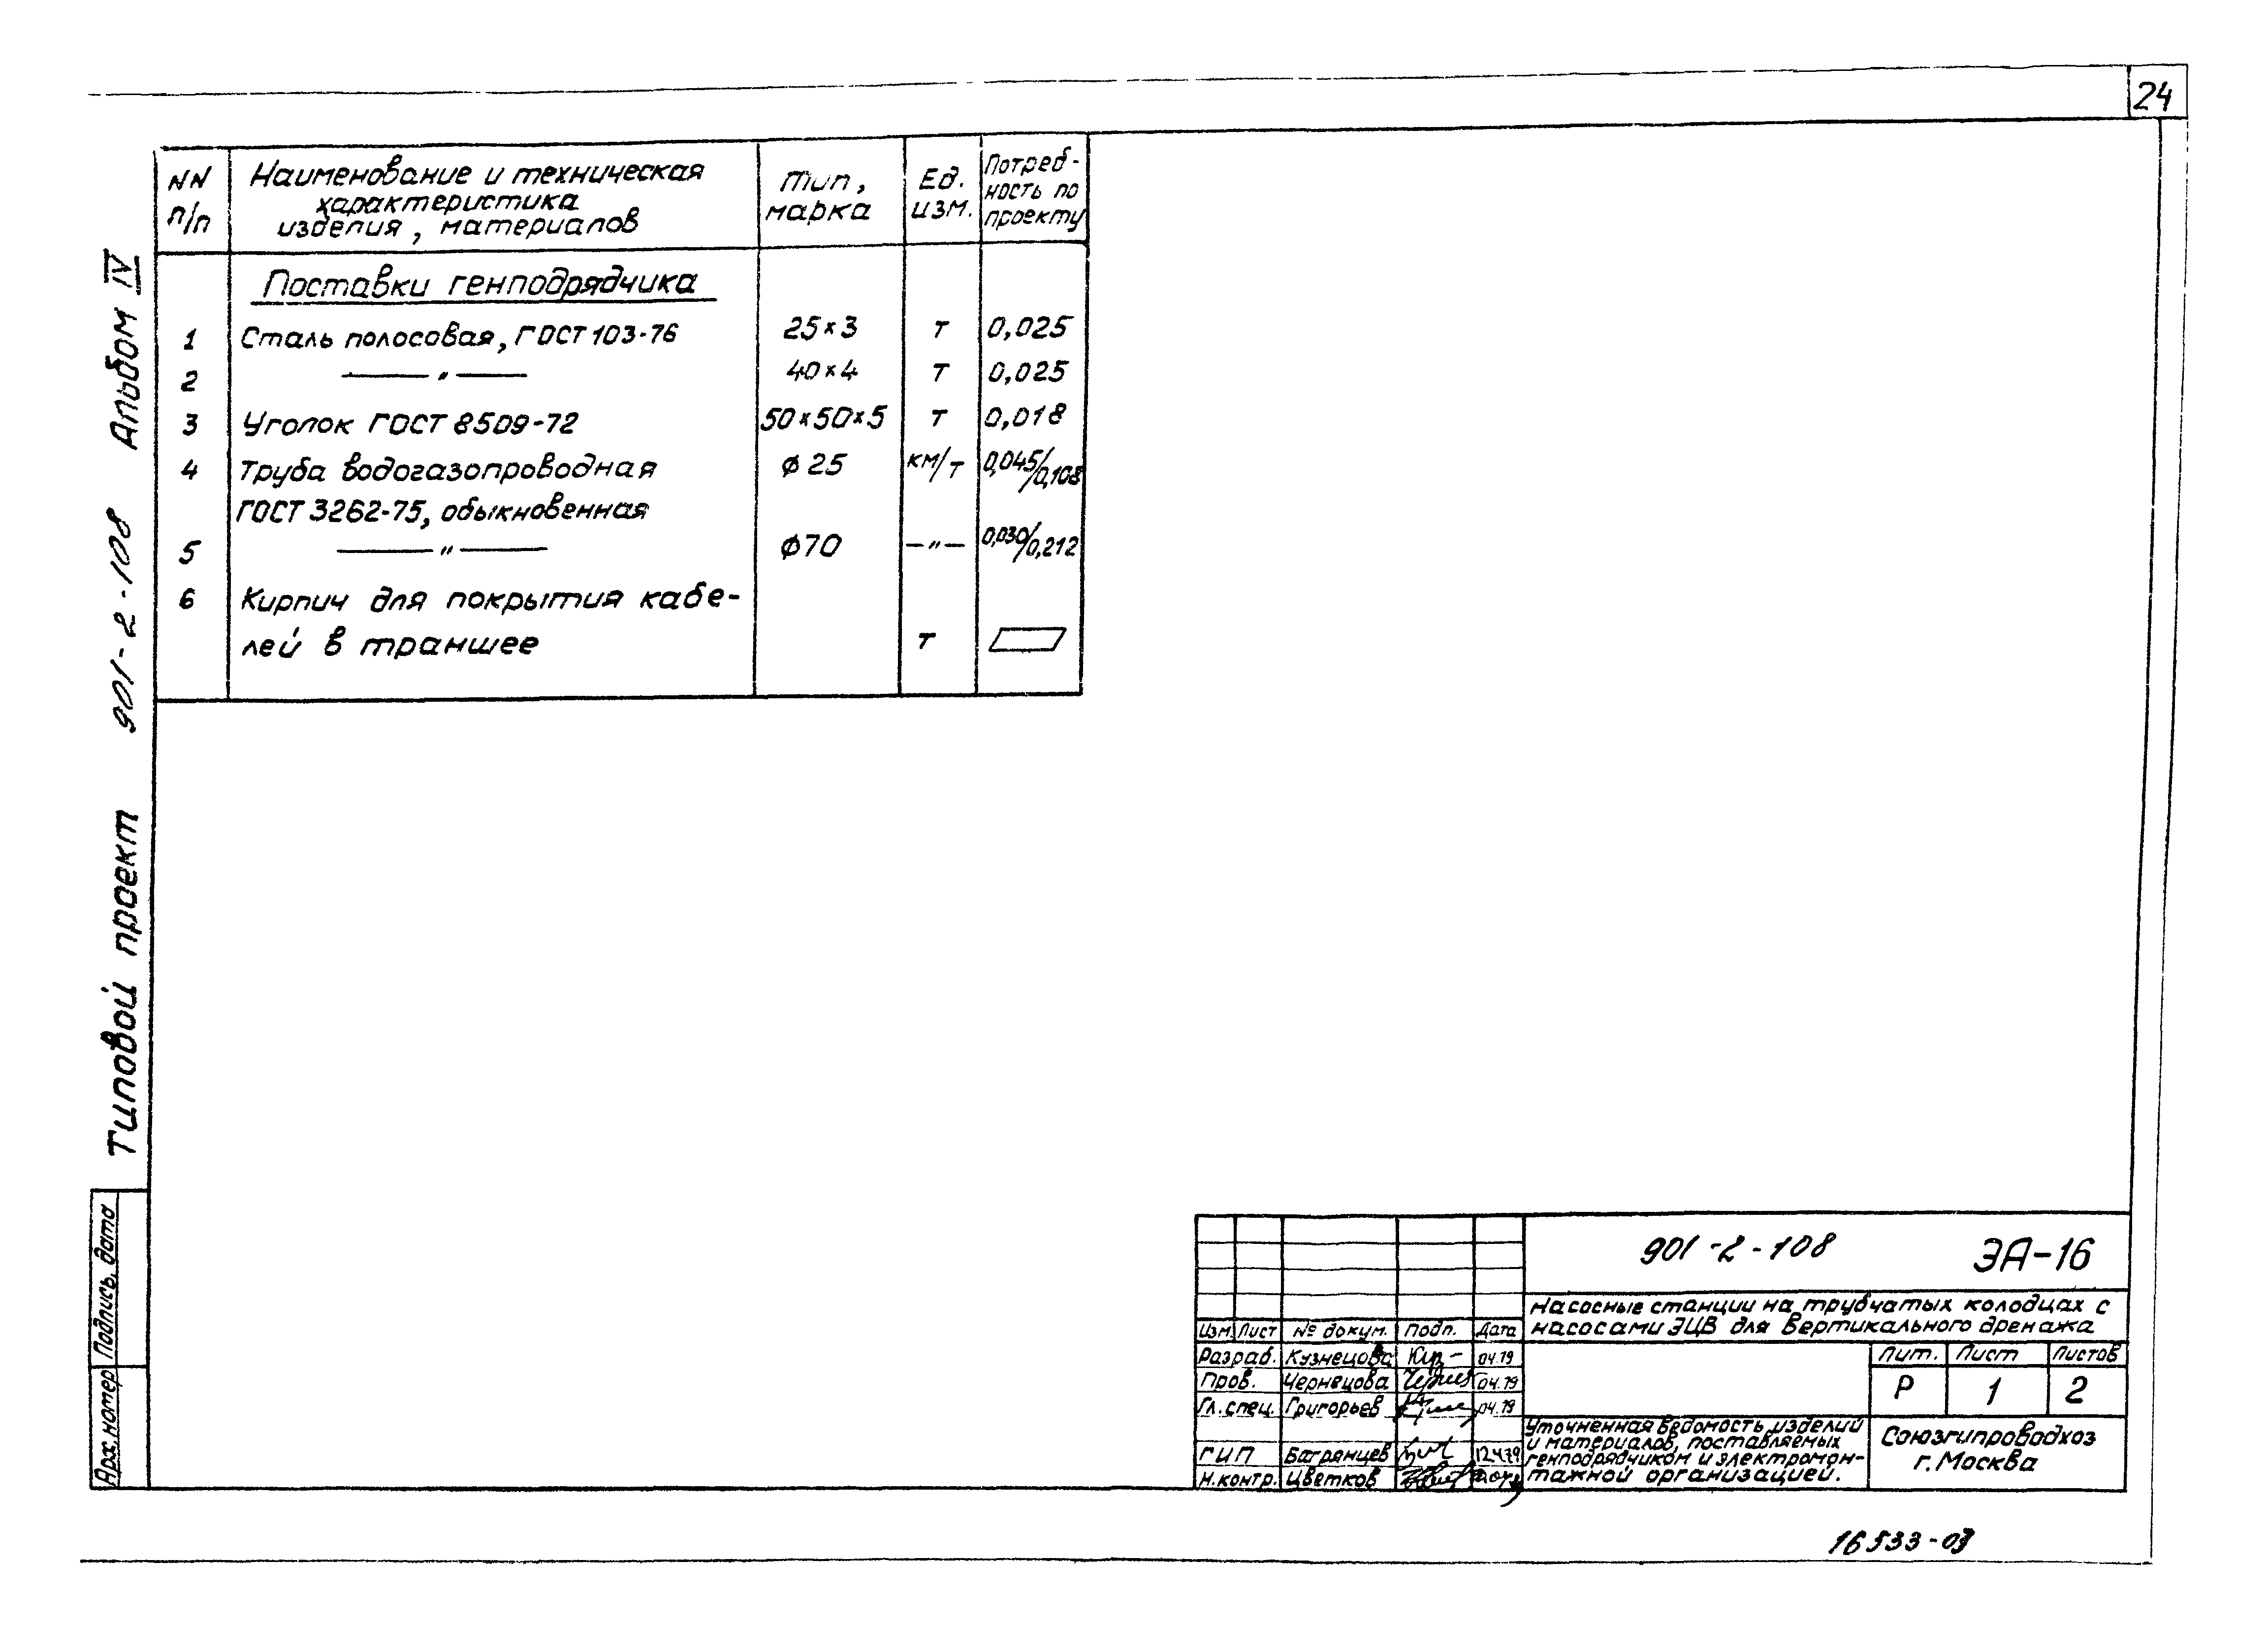 24
NN п/п
Наименование и техническая
характеристика
изделия, материалов
Тип,
марка
Ед.
изм.
Потреб-
ность по
проекту
Поставки генподрядчика
1 Сталь полосовая, ГОСТ 103-76 25×3 т 0,025
2 —— " —— 40×4 т 0,025
3 Уголок ГОСТ 8509-72 50×50×5 т 0,018
4 Труба водогазопроводная ϕ 25 км/т 0,045/0,108
ГОСТ 3262-75, обыкновенная
5 —— " —— ϕ70 —"— 0,030/0,212
6 Кирпич для покрытия кабе-
лей в траншее т
Типовой проект 901-2-108 Альбом IV
Подпись, дата
Арх. номер
901-2-108 ЭА-16
Насосные станции на трубчатых колодцах с
насосами ЭЦВ для вертикального дренажа
Изм. Лист № докум. Подп. Дата
Разраб. Кузнецова 04.79
Пров. Чернецова 04.79
Гл. спец. Григорьев 04.79
ГИП Багрянцев 12.4.79
Н.контр. Цветков
Лит. Лист Листов
Р 1 2
Уточненная ведомость изделий
и материалов, поставляемых
генподрядчиком и электромон-
тажной организацией.
Союзгипроводхоз
г. Москва
16533-03